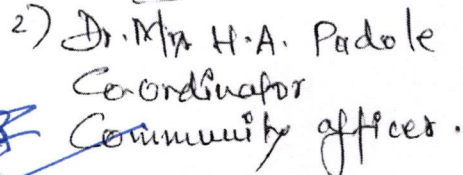 2) Dr. Mrs H.A. Padole
Co-ordinator
Community officer.